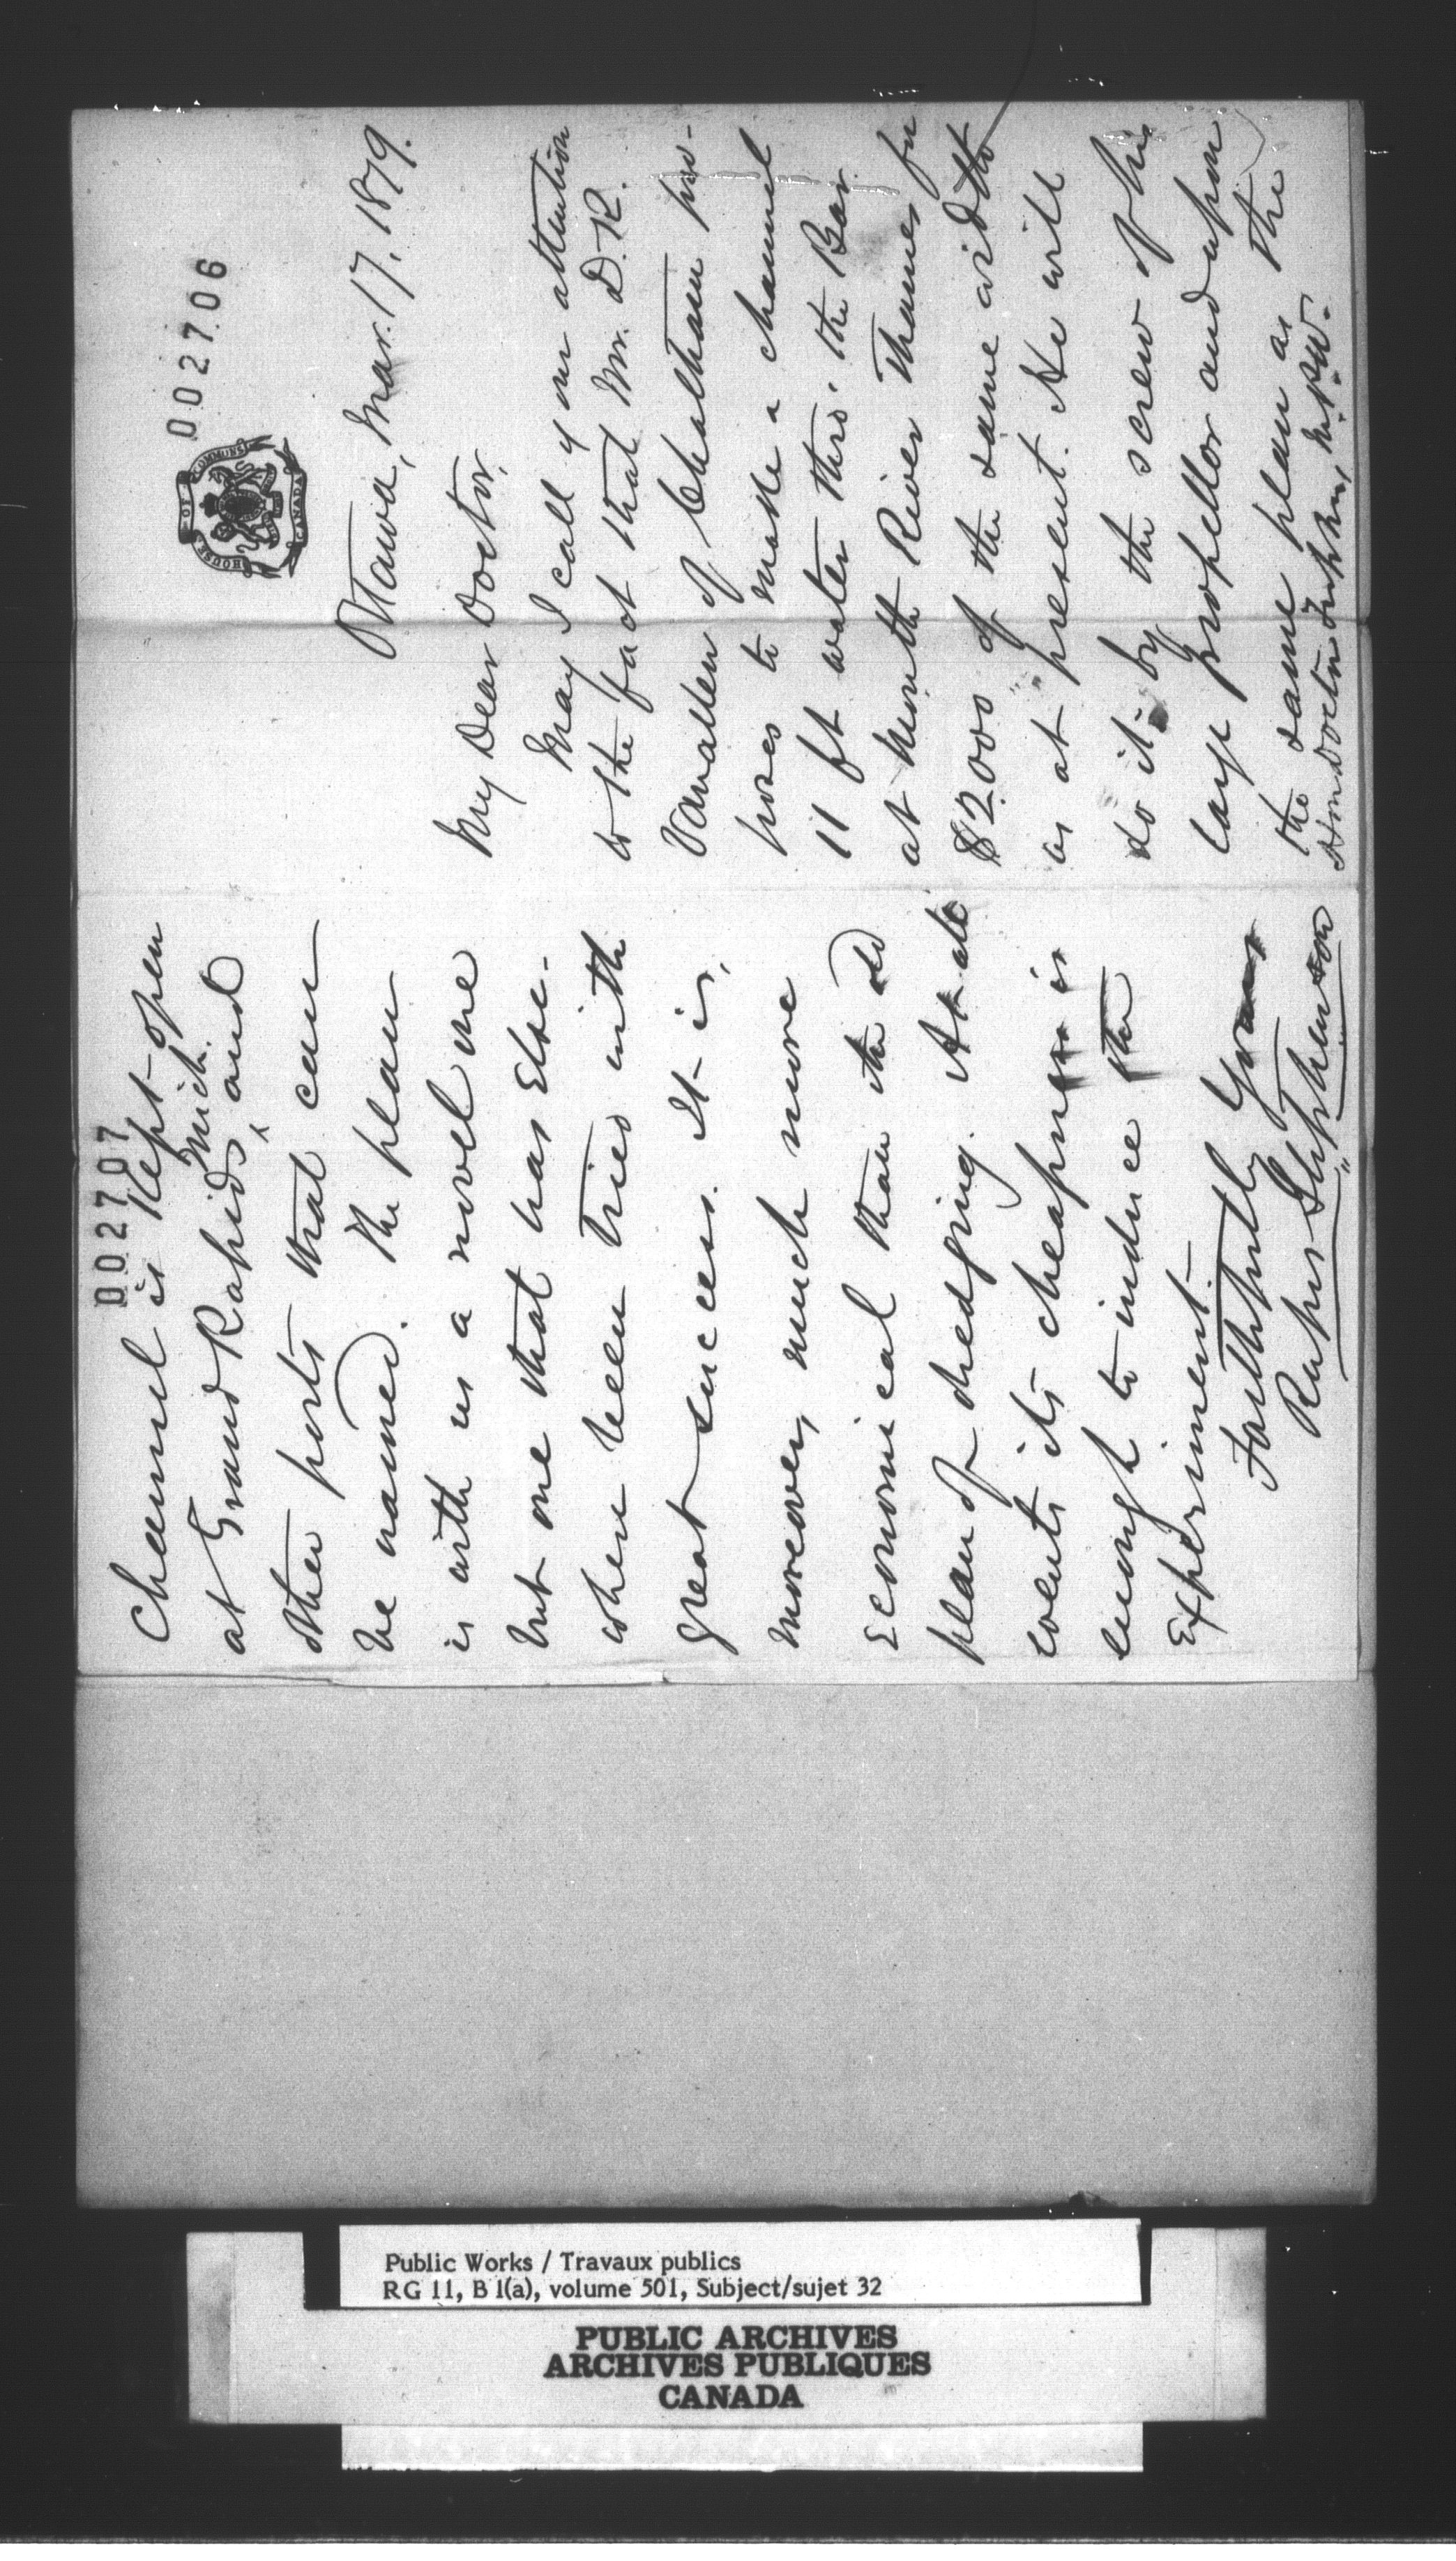 002706
HOUSE OF COMMONS CANADA
Ottawa, Mar. 17, 1879.
My Dear Doctor,
May I call your attention
to the fact that Mr. D. R.
Vanallen of Chatham pro-
poses to make a channel
11 ft water thro' the Bar
at mouth River Thames for
$2000 of the same width
as at present. He will
do it by the screw of his
large propellor and upon
the same plan as the
Hon Doctor Tupper, M.P.W.
002707
Channel is kept open
at Grand Rapids, Mich. and
other ports that can
be named. The plan
is with us a novel one
but one that has else-
where been tried with
great success. It is,
moreover, much more
economical than the old
plan of dredging. At all
events its cheapness is
enough to induce the
experiment.
Faithfully Yours
Rufus Stephenson
Public Works / Travaux publics
RG 11, B 1(a), volume 501, Subject/sujet 32
PUBLIC ARCHIVES
ARCHIVES PUBLIQUES
CANADA